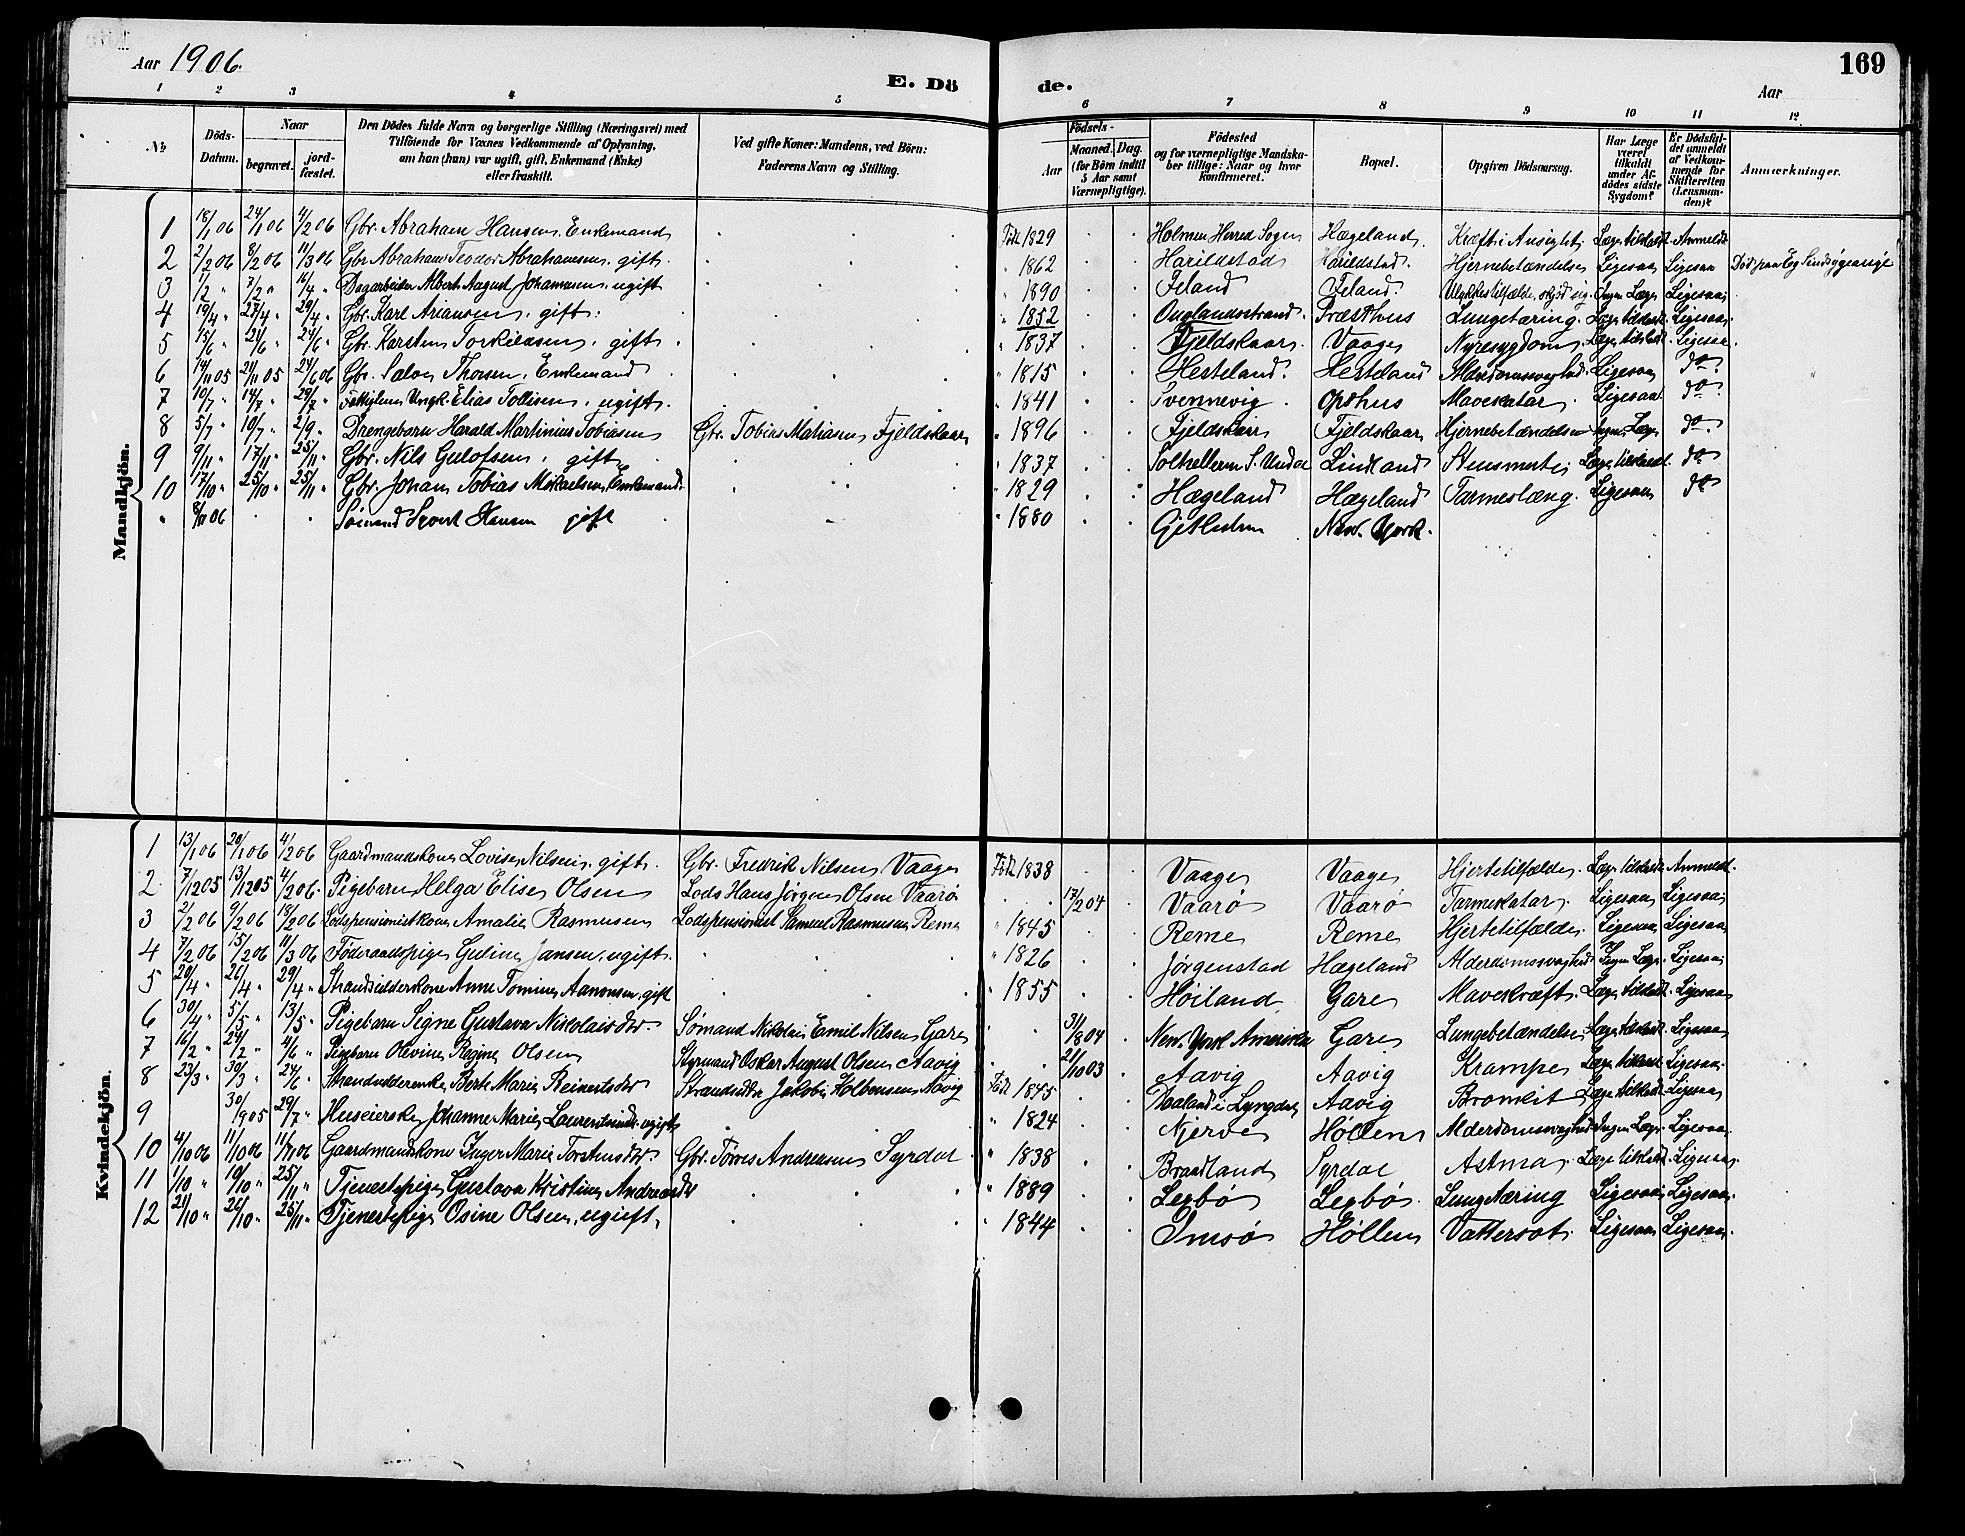 Aar 1906.
E. Dö de.
169
Aar
1 2 3 4 5 6 7 8 9 10 11 12
№
Döds-Datum.
Naar
begravet.
jord-fæstet.
Den Dödes fulde Navn og borgerlige Stilling (Næringsvei) med Tilföiende for Voxnes Vedkommende af Oplysning, om han (hun) var ugift, gift, Enkemand (Enke) eller fraskilt.
Ved gifte Koner: Mandens, ved Börn: Faderens Navn og Stilling.
Födsels-
Aar
Maaned. Dag. (for Börn indtil 5 Aar samt Værnepligtige).
Födested og for værnepligtige Mandskaber tillige: Naar og hvor konfirmeret.
Bopæl.
Opgiven Dödsaarsag.
Har Læge været tilkaldt under Afdödes sidste Sygdom?
Er Dödsfaldet anmeldt af Vedkommende for Skifteretten (Lensmanden)?
Anmærkninger.
Mandkjön.
1 18/1 06 24/1 06 4/2 06 Gbr. Abraham Hansen, Enkemand Født 1829 Holmen Herred Sogn Hægeland Kræft i Ansigtet Læge tilkaldt Anmeldt
2 2/2 06 8/2 06 11/3 06 Gbr. Abraham Teodor Abrahamsen, gift. " 1862 Harildstad Harildstad. Hjernebetændelse Ligesaa Ligesaa Död paa Eg Sindsygeasyl
3 1/2 " 7/2 " 16/4 " Dagarbeider Albert August Johannesen, ugift " 1890 Ieland Ieland. Ulykkestilfælde, skjød sig. Ingen Læge Ligesaa
4 19/4 " 27/4 " 29/4 " Gbr. Karl Ariansen, gift. " 1852 Ouglandsstrand. Præsthus Lungetæring. Læge tilkaldt. Ligesaa
5 15/6 " 21/6 " 24/6 " Gbr. Karsten Torkildsen, gift. " 1837 Fjeldskaar. Vaage Nyresygdom Læge tilkaldt Ligesaa
6 14/11 05 21/11 05 24/6 06 Gbr. Salve Thorsen, Enkemand " 1815 Hesteland. Hesteland Alderdomssvaghed. Ligesaa do
7 10/7 " 14/7 " 29/7 " Fattiglem Ungk. Elias Tollisen, ugift. " 1841 Svennevig. Opsthus Mavekatar. Ligesaa do
8 5/7 " 10/7 " 2/9 " Drengebarn Harald Martinius Tobiasen Gbr. Tobias Matiasen Fjeldskaar " 1896 Fjeldskaar Fjeldskaar Hjernebetændelse Ingen Læge do
9 9/11 " 17/11 " 25/11 " Gbr. Nils Gulofsen, gift " 1837 S. Undal Lindland Stensmerte Læge tilkaldt. do
10 17/10 " 25/10 " 25/11 " Gbr. Johan Tobias Mikaelsen, Enkemand. " 1829 Hægeland Hægeland Tarmeslæng. Ligesaa do
" 8/11 06 Sømand Syvert Hansen gift " 1880 Gjetholm New. York.
Kvindekjön.
1 13/1 06 20/1 06 4/2 06 Gaardmandskone Lovise Nilsen, gift. Gbr. Fredrik Nilsen Vaage Født 1838 Vaage Vaage Hjertetilfælde. Læge tilkaldt Anmeldt.
2 7/12 05 13/12 05 4/2 06. Pigebarn Helga Elise Olsen Lods Hans Jörgen Olsen Vaarø 17/2 04 Vaarø Vaarø Tarmekatar. Ligesaa Ligesaa
3 2/2 06 9/2 06 18/2 06 Lodspensionistkone Amalie Rasmussen Lodspensionist Samuel Rasmussen Reme " 1845 Reme Reme Hjertetilfælde Ligesaa Ligesaa
4 7/2 06 15/2 06 11/3 06 Föderaadspige Guline Jansen, ugift. " 1826 Jørgenstad Hægeland Alderdomssvaghed Ingen Læge Ligesaa
5 20/4 " 26/4 " 29/4 " Strandsidderkone Anne Tomine Aanonsen, gift " 1855 Høiland Gare Mavekræft. Læge tilkaldt. Ligesaa
6 30/4 " 5/5 " 13/5 " Pigebarn Signe Gustava Nikolaisdtr. Sømand Nikolai Emil Nilsen Gare 31/8 04 New. York Amerika Gare Lungebetændelse Læge tilkaldt Ligesaa
7 16/2 " 24/2 " 4/6 " Pigebarn Olevine Regine Olsen Styrmand Oskar August Olsen Aavig 21/10 03 Aavig Aavig Krampe Læge tilkaldt Ligesaa
8 23/3 " 30/3 " 24/6 " Strandsidderenke Berte Marie Reinertsdtr Strandsidder Jakob Aavig Født 1845 Haaland i Lyngdal Aavig Bronkit Læge tilkaldt Ligesaa
9 30/9 05 29/7 " Huseierske Johanne Marie Laurentsindr. ugift " 1824 Njerve Høllen Alderdomssvaghed Ingen Læge Ligesaa
10 4/10 06 11/10 06 11/11 06 Gaardmandskone Inger Marie Torstensdtr. Gbr. Tørres Andreasen Syrdal " 1838 Brandland Syrdal Astma. Læge tilkaldt. Ligesaa
11 1/10 " 10/10 " 25/11 " Tjenestepige Gustava Kristine Andreasdtr " 1889 Lexbø Lexbø. Lungetæring Ligesaa Ligesaa
12 21/10 " 26/10 " 25/11 " Tjenestepige Osine Olsen, ugift. " 1844 Imsø Høllen Vattersot Ligesaa Ligesaa